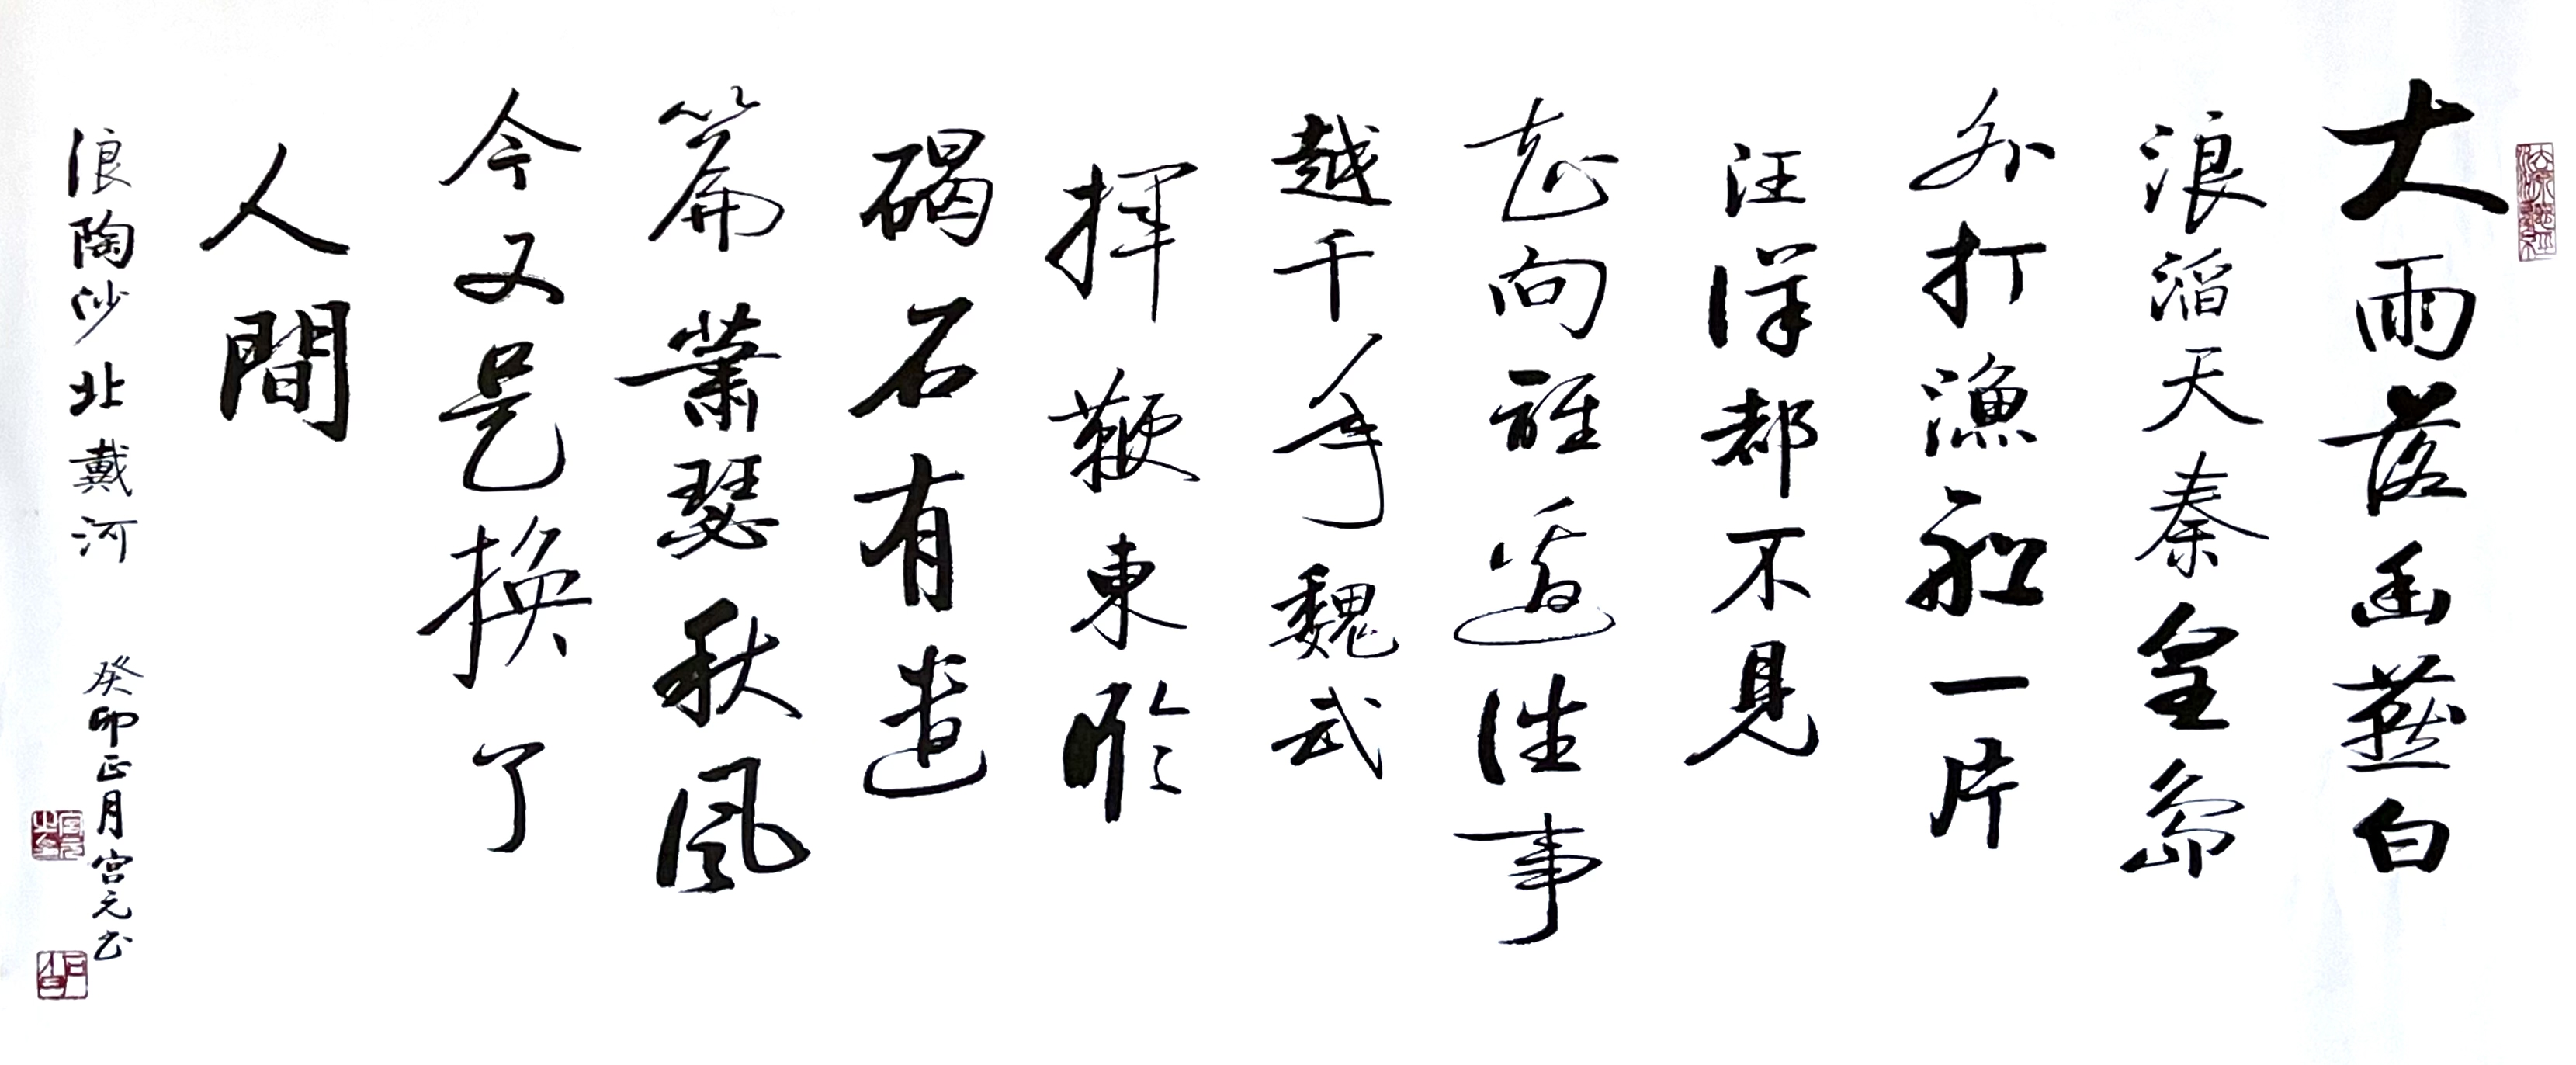 大雨落幽燕白
浪滔天秦皇島
外打漁船一片
汪洋都不見
知向誰邊往事
越千年魏武
揮鞭東臨
碣石有遺
篇蕭瑟秋風
今又是換了
人間
浪陶沙北戴河
癸卯正月宫元书